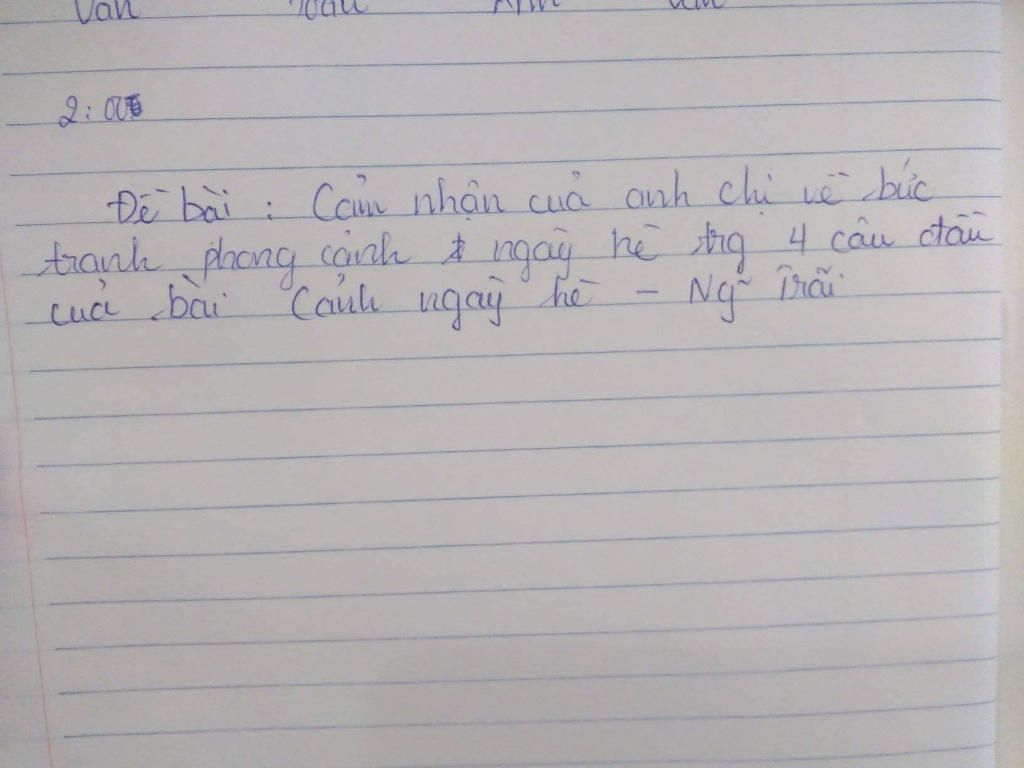 Văn Toán Anh Văn
2:00
Đề bài : Cảm nhận của anh chị về bức
tranh phong cảnh ngày hè trg 4 câu đầu
của bài Cảnh ngày hè - Ng~ Trãi